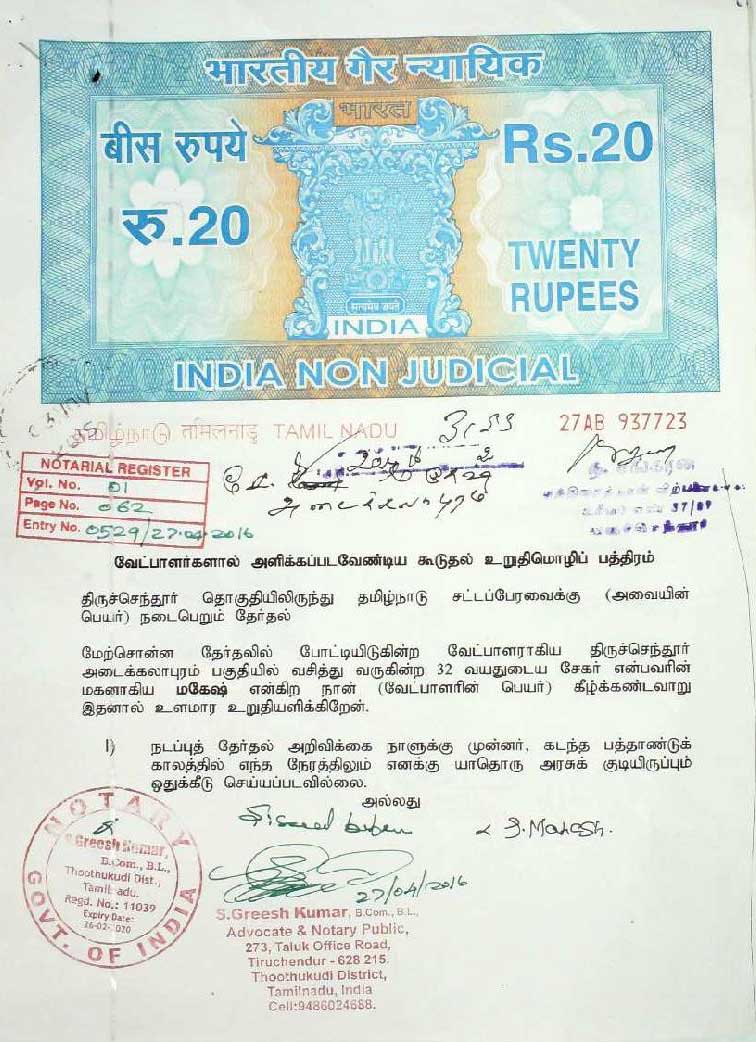 भारतीय गैर न्यायिक
भारत
बीस रुपये
Rs.20
रु.20
TWENTY
RUPEES
सत्यमेव जयते
INDIA
INDIA NON JUDICIAL
தமிழ்நாடு तमिलनाडु TAMIL NADU
27AB 937723
NOTARIAL REGISTER
Vol. No. 01
Page No. 062
Entry No. 0529/27.04.2016
வேட்பாளர்களால் அளிக்கப்படவேண்டிய கூடுதல் உறுதிமொழிப் பத்திரம்
திருச்செந்தூர் தொகுதியிலிருந்து தமிழ்நாடு சட்டப்பேரவைக்கு (அவையின்
பெயர்) நடைபெறும் தேர்தல்
மேற்சொன்ன தேர்தலில் போட்டியிடுகின்ற வேட்பாளராகிய திருச்செந்தூர்
அடைக்கலாபுரம் பகுதியில் வசித்து வருகின்ற 32 வயதுடைய சேகர் என்பவரின்
மகனாகிய மகேஷ் என்கிற நான் (வேட்பாளரின் பெயர்) கீழ்க்கண்டவாறு
இதனால் உளமார உறுதியளிக்கிறேன்.
I) நடப்புத் தேர்தல் அறிவிக்கை நாளுக்கு முன்னர், கடந்த பத்தாண்டுக்
காலத்தில் எந்த நேரத்திலும் எனக்கு யாதொரு அரசுக் குடியிருப்பும்
ஒதுக்கீடு செய்யப்படவில்லை.
அல்லது
S. Mahesh.
27/04/2016
NOTARY
S.Greesh Kumar,
B.Com., B.L.,
Thoothukudi Dist.,
Tamilnadu.
Regd. No.: 11039
Expiry Date:
GOVT. OF INDIA
S.Greesh Kumar, B.Com., B.L.,
Advocate & Notary Public,
273, Taluk Office Road,
Tiruchendur - 628 215.
Thoothukudi District,
Tamilnadu, India
Cell:9486024688.